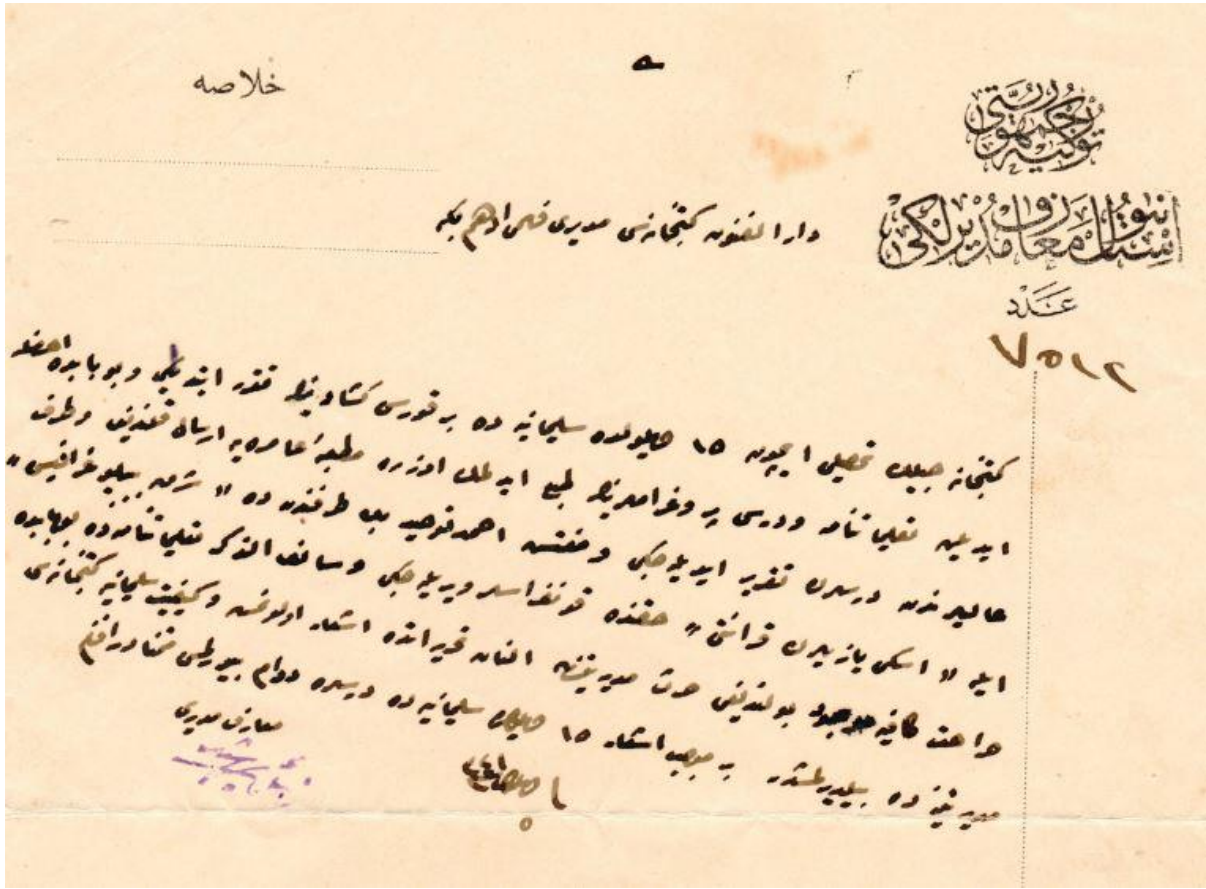 خلاصه
توركيه جمهوريتى
استانبول معارف مديرلكى
عدد
٧٥١٢
دار الفنون كتبخانه سى مديرى فهمى ادهم بكه
كتبخانه جيلك تحصيلى ايچون ١٥ ايلولده سليمانيه ده بر قورس كشادينه تقرر ايتديكى و بو بابده احضار
ايديلن تعليماتنامه و درس پروغرامى طبع ايدلمك اوزره مطبعهٔ عامره يه ارسال قلنديغى و طرف
عاليلرندن درسلرى تقرير ايديله جكى و مفتش احمد توحيد بك طرفندن ده « شرق بيبليوغرافيسى »
ايله « اسكى يازيلرى قرائتى » حقنده قونفرانسلر ويريله جكى و سالف الذكر تعليماتنامه ده بو بابده
صراحت كافيه موجود بولنديغى حرث مديريتندن آلنان تحريراتده اشعار اولونمش و كيفيت سليمانيه كتبخانه سى
مديريتنه ده بيلديرلمشدر بر موجب اشعار ١٥ ايلولده سليمانيه ده درسه دوام بيورلمسى متمنادر افندم
معارف مديرى